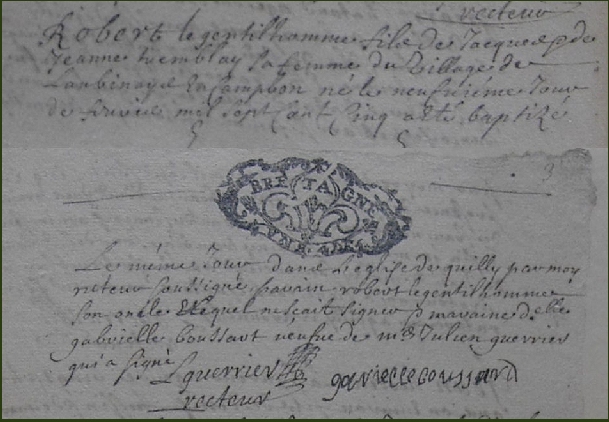 recteur
Robert legentilhomme fils de Jacques & de
Jeanne tremblay sa femme du Village de
Laubinays en Campbon né le neufvieme Jour
de fevrier mil sept cent Cinq a eté baptizé
BRETAGNE
Le méme Jour dans L'eglise de quilly par moy
recteur soussigné parain robert legentilhomme
son oncle Lequel ne sçait signer & maraine d elle
gabrielle boussart veufve de mre Julien guerrier
qui a signé
L guerrier gabrielle boussard
recteur